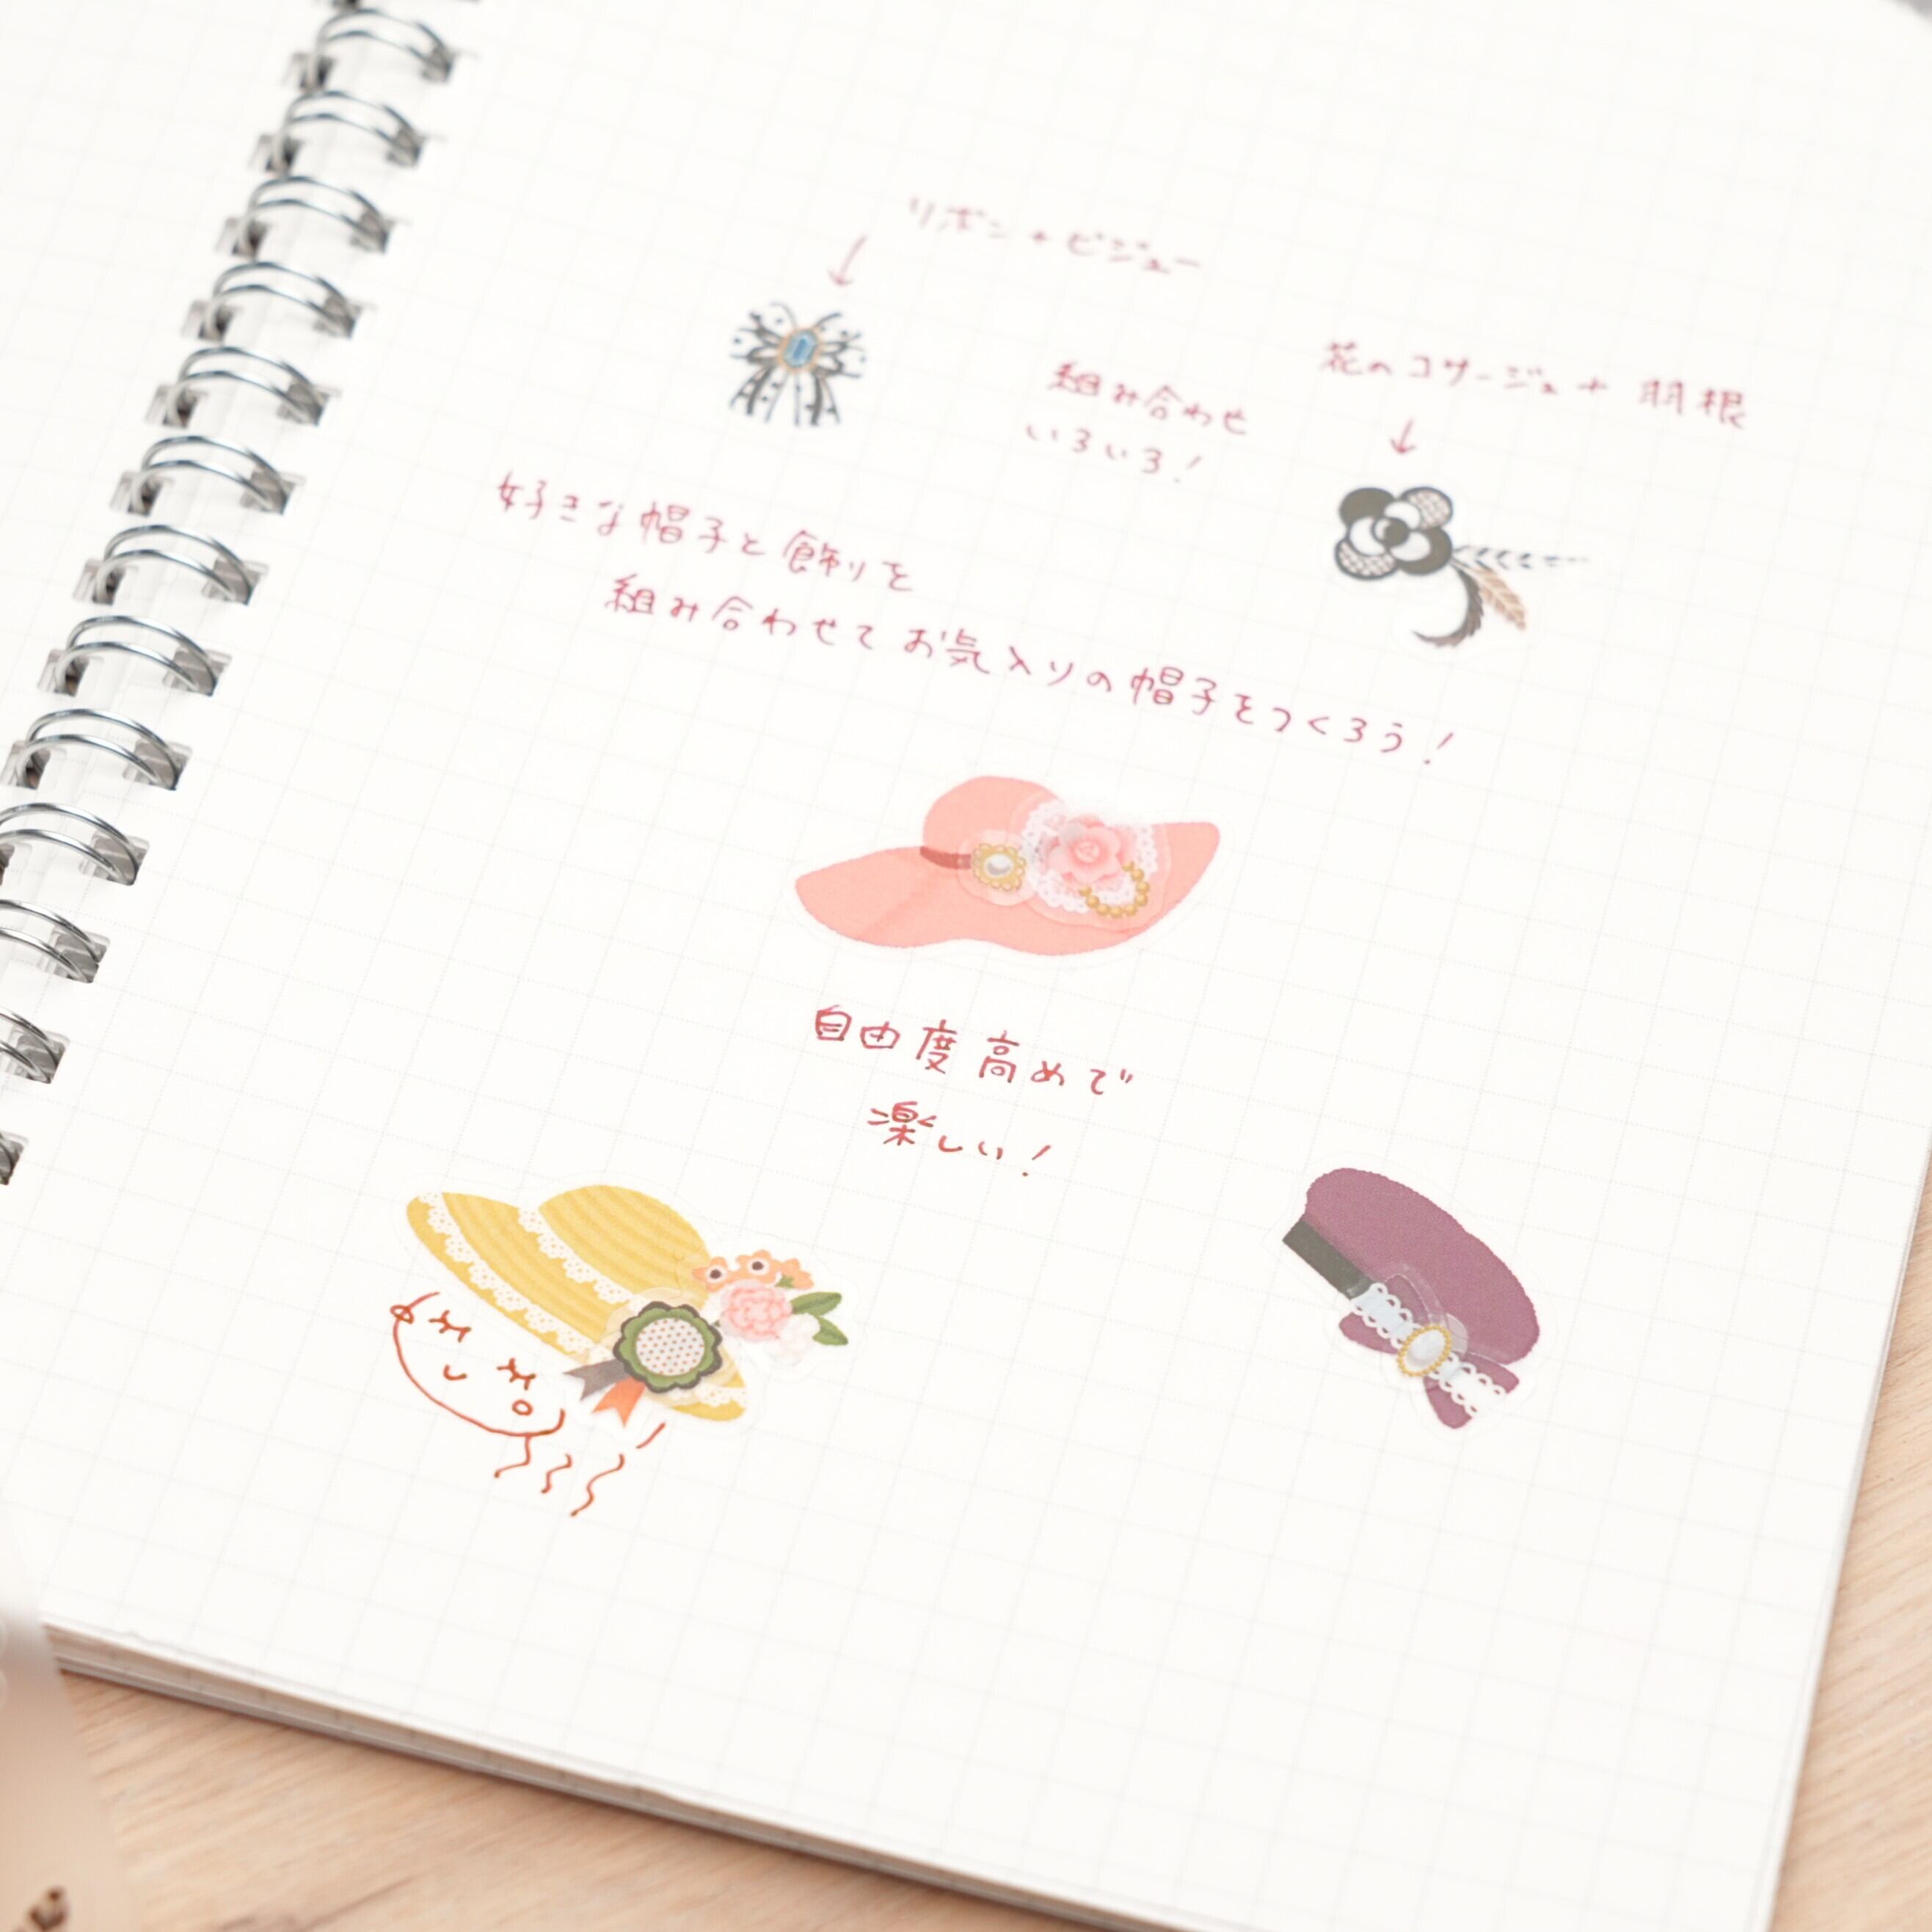 リボン+ビジュー
花のコサージュ+羽根
組み合わせ
いろいろ!
好きな帽子と飾りを
組み合わせてお気入りの帽子をつくろう!
自由度高めで
楽しい!